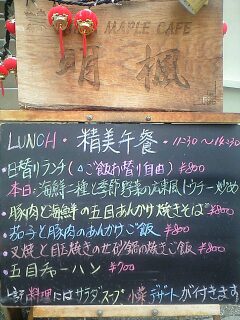 MAPLE CAFE
明楓
LUNCH・精美午餐・11:30〜14:30
・日替りランチ(△ご飯お替り自由) ¥800
本日・海鮮二種と季節野菜の広東風ピリ辛炒め
・豚肉と海鮮の五目あんかけ焼きそば ¥800
・茄子と豚肉のあんかけご飯 ¥800
・叉焼と目玉焼きのせ砂鍋の焼きご飯 ¥800
・五目チャーハン ¥700
上記料理にはサラダスープ小菜デザートが付きます。